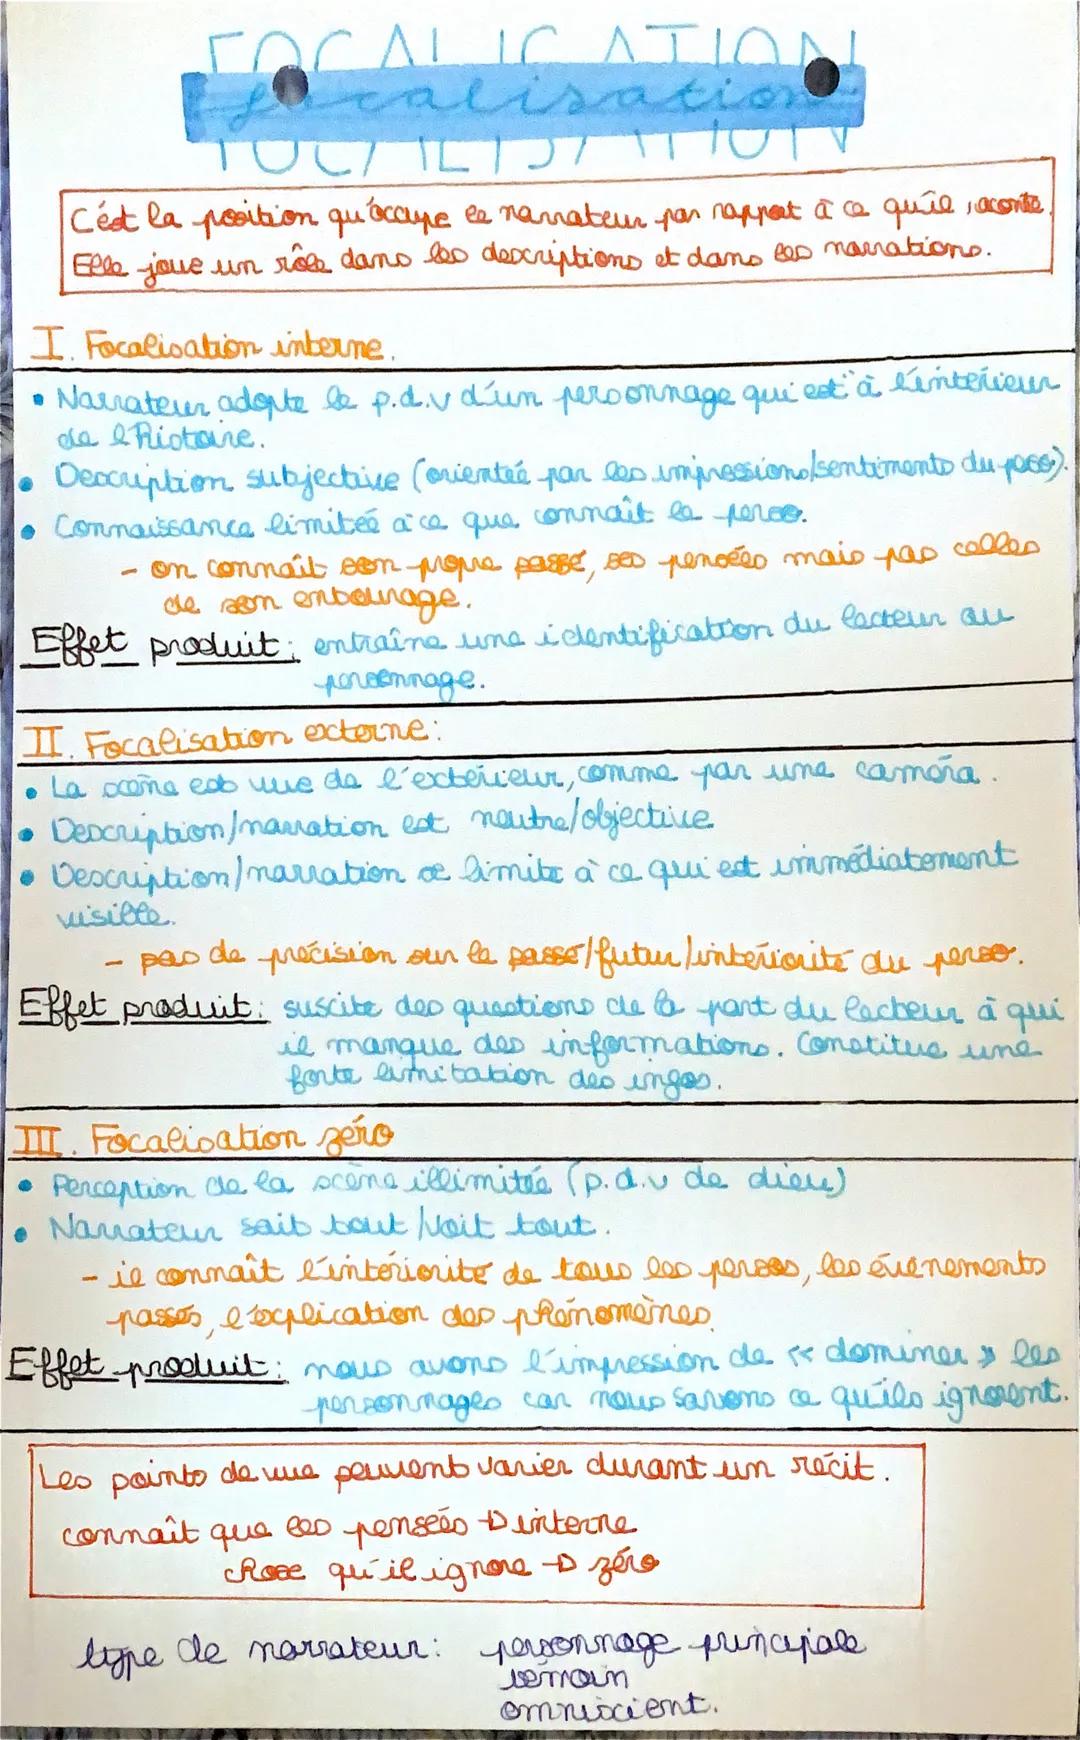 FOCALISATION
focalisation
C'est la position qu'occupe le narrateur par rapport à ce qu'il raconte.
Elle joue un rôle dans les descriptions et dans les narrations.
I. Focalisation interne.
• Narrateur adopte le p.d.v d'un personnage qui est "à l'intérieur
de l'histoire.
• Description subjective (orientée par les impressions/sentiments du perso).
• Connaissance limitée à ce que connaît le perso.
- on connaît son propre passé, ses pensées mais pas celles
de son entourage.
Effet produit: entraîne une identification du lecteur au
personnage.
II. Focalisation externe:
• La scène est vue de l'extérieur, comme par une caméra.
• Description/narration est neutre/objective
• Description/narration se limite à ce qui est immédiatement
visible.
- pas de précision sur le passé/futur/intériorité du perso.
Effet produit: suscite des questions de la part du lecteur à qui
il manque des informations. Constitue une
forte limitation des infos.
III. Focalisation zéro
• Perception de la scène illimitée (p.d.v de dieu)
• Narrateur sait tout/voit tout.
- il connaît l'intériorité de tous les persos, les événements
passés, l'explication des phénomènes.
Effet produit: nous avons l'impression de « dominer » les
personnages car nous savons ce qu'ils ignorent.
Les points de vue peuvent varier durant un récit.
connaît que ses pensées → interne
chose qu'il ignore → zéro
type de narrateur: personnage principale
témoin
omniscient.